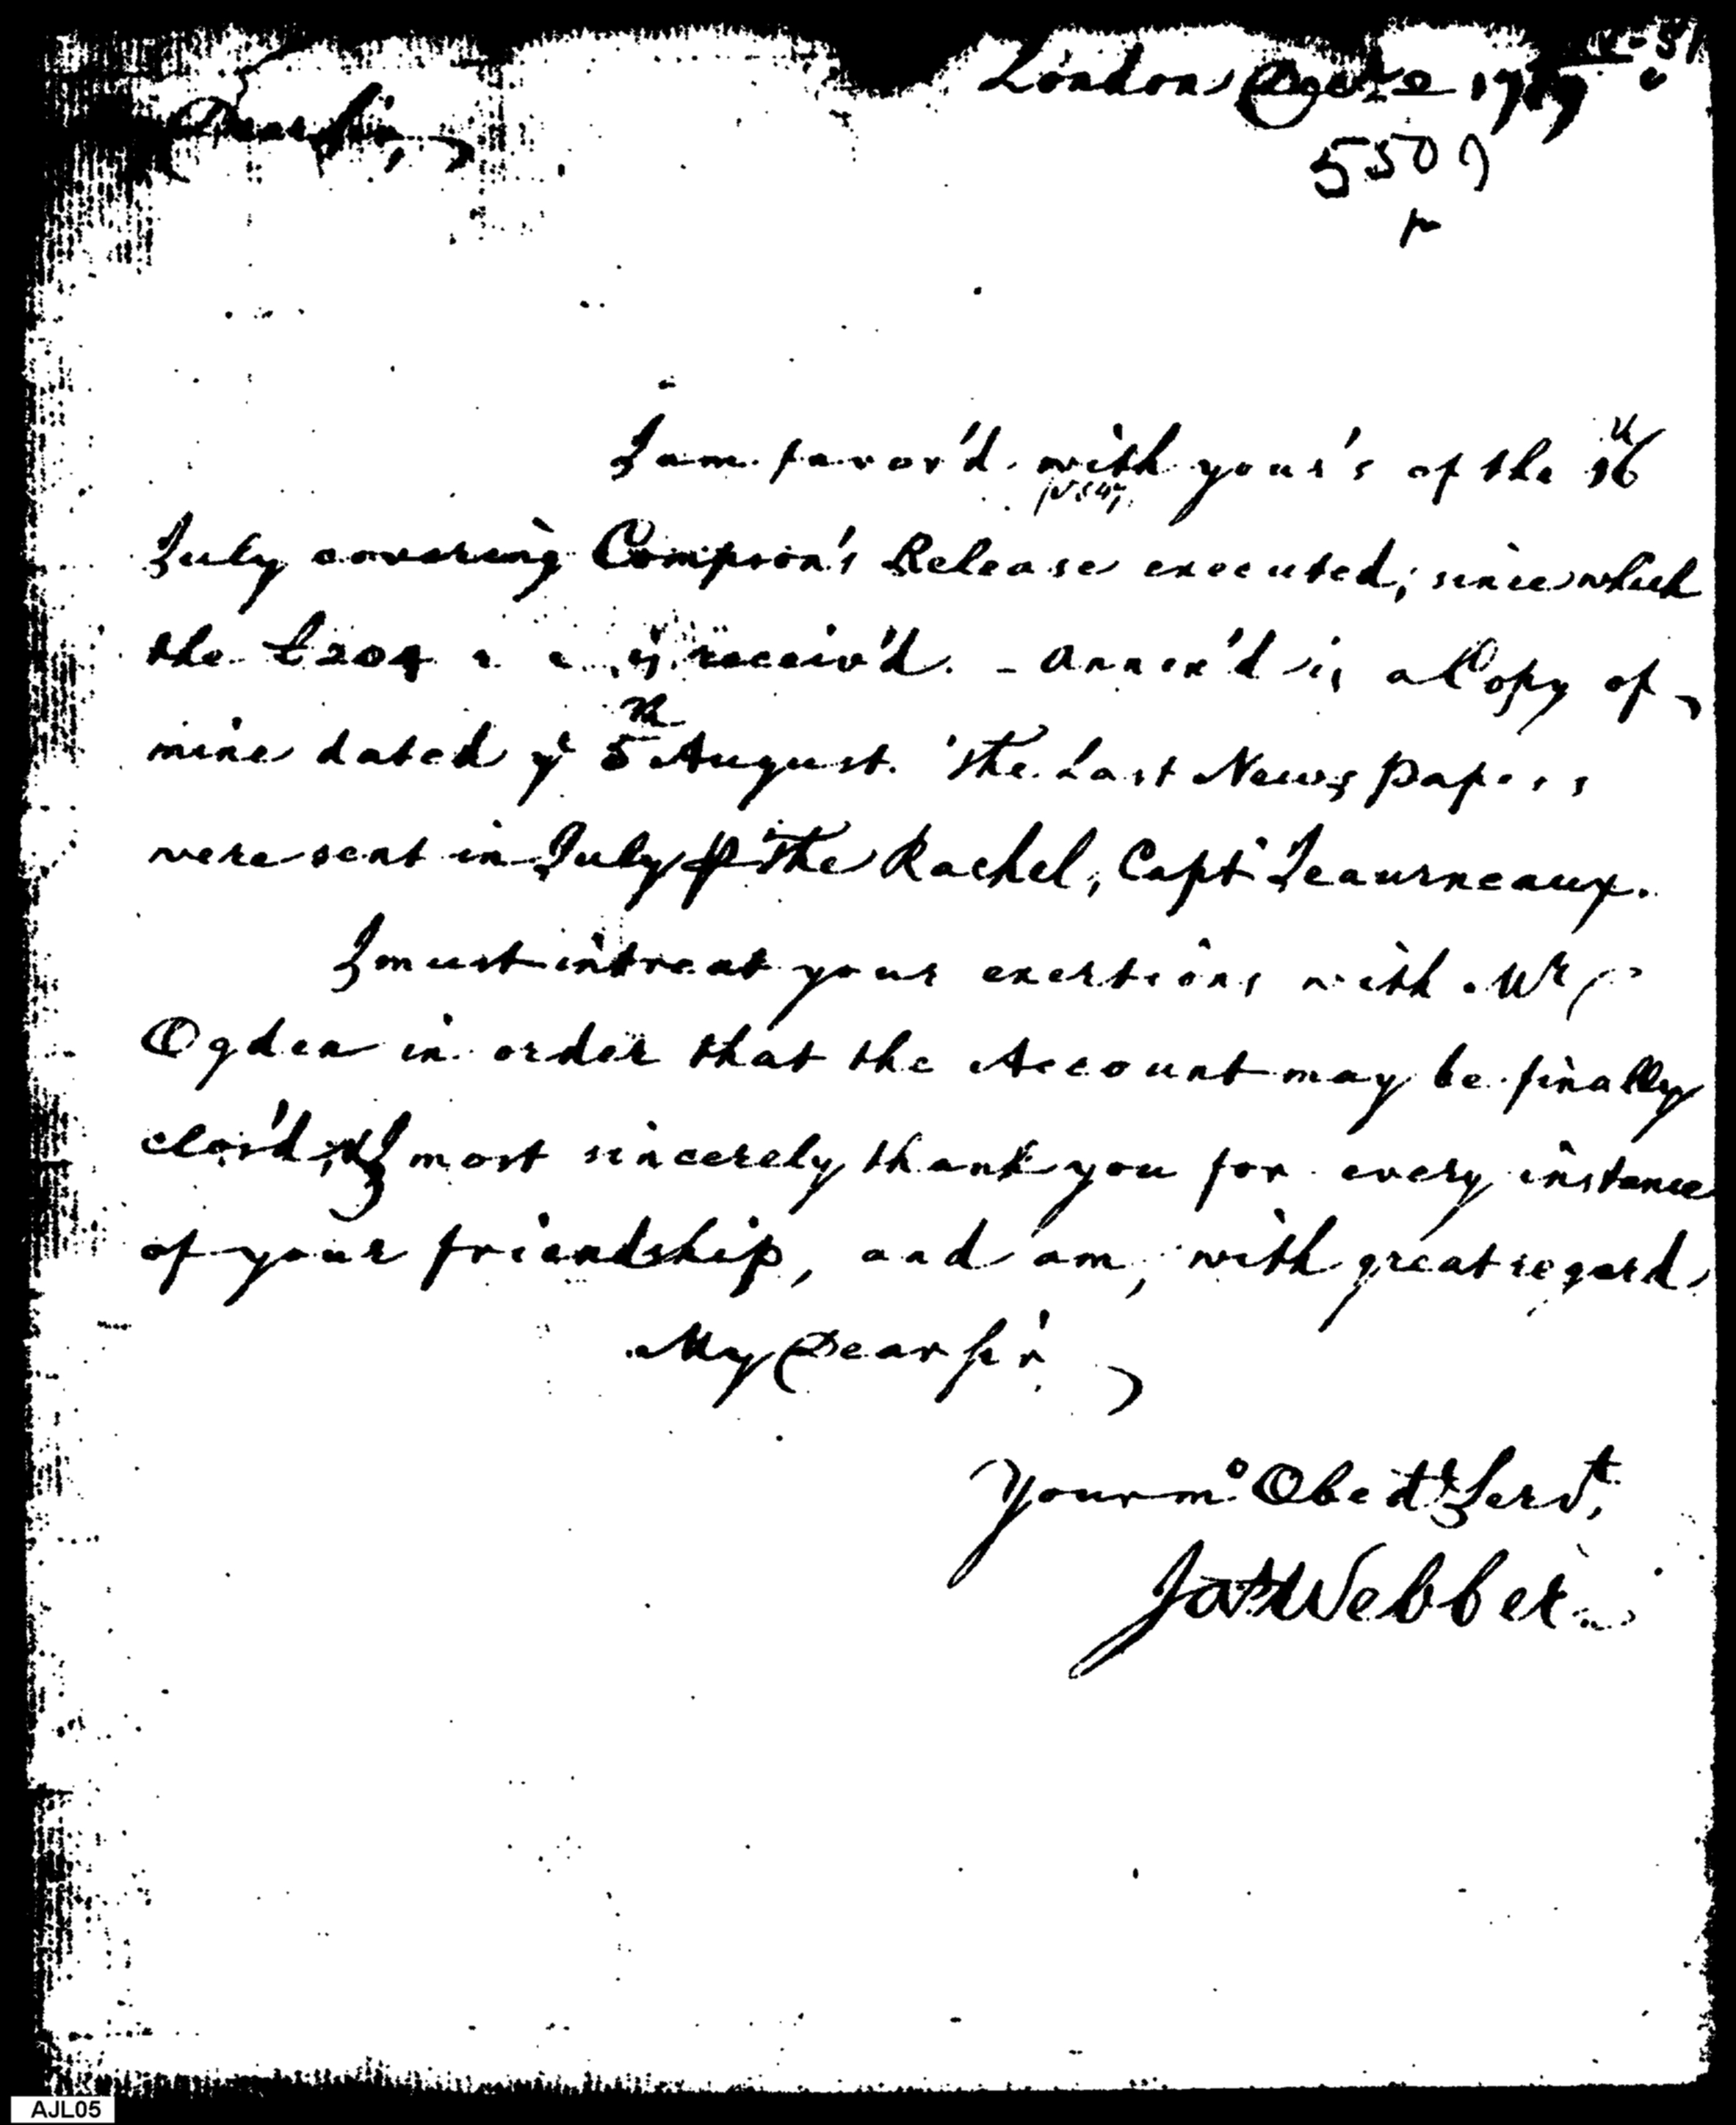 London Octr 2 1789
Dear Sir,
5509
I am favor'd with your's of the 16th
July covering Compton's Release executed, since which
the £204 " " is receiv'd. - Annex'd is a Copy of
mine dated ye 5th August. The Last News papers
were sent in July ⅌ The Rachel, Capt Teaurneaux.
I must intreat your exertions with Mr
Ogden in order that the Account may be finally
clos'd, & I most sincerely thank you for every instance
of your friendship, and am, with great regard
My Dear Sir
Your mo Obedt Servt,
Jas Webber
AJL05